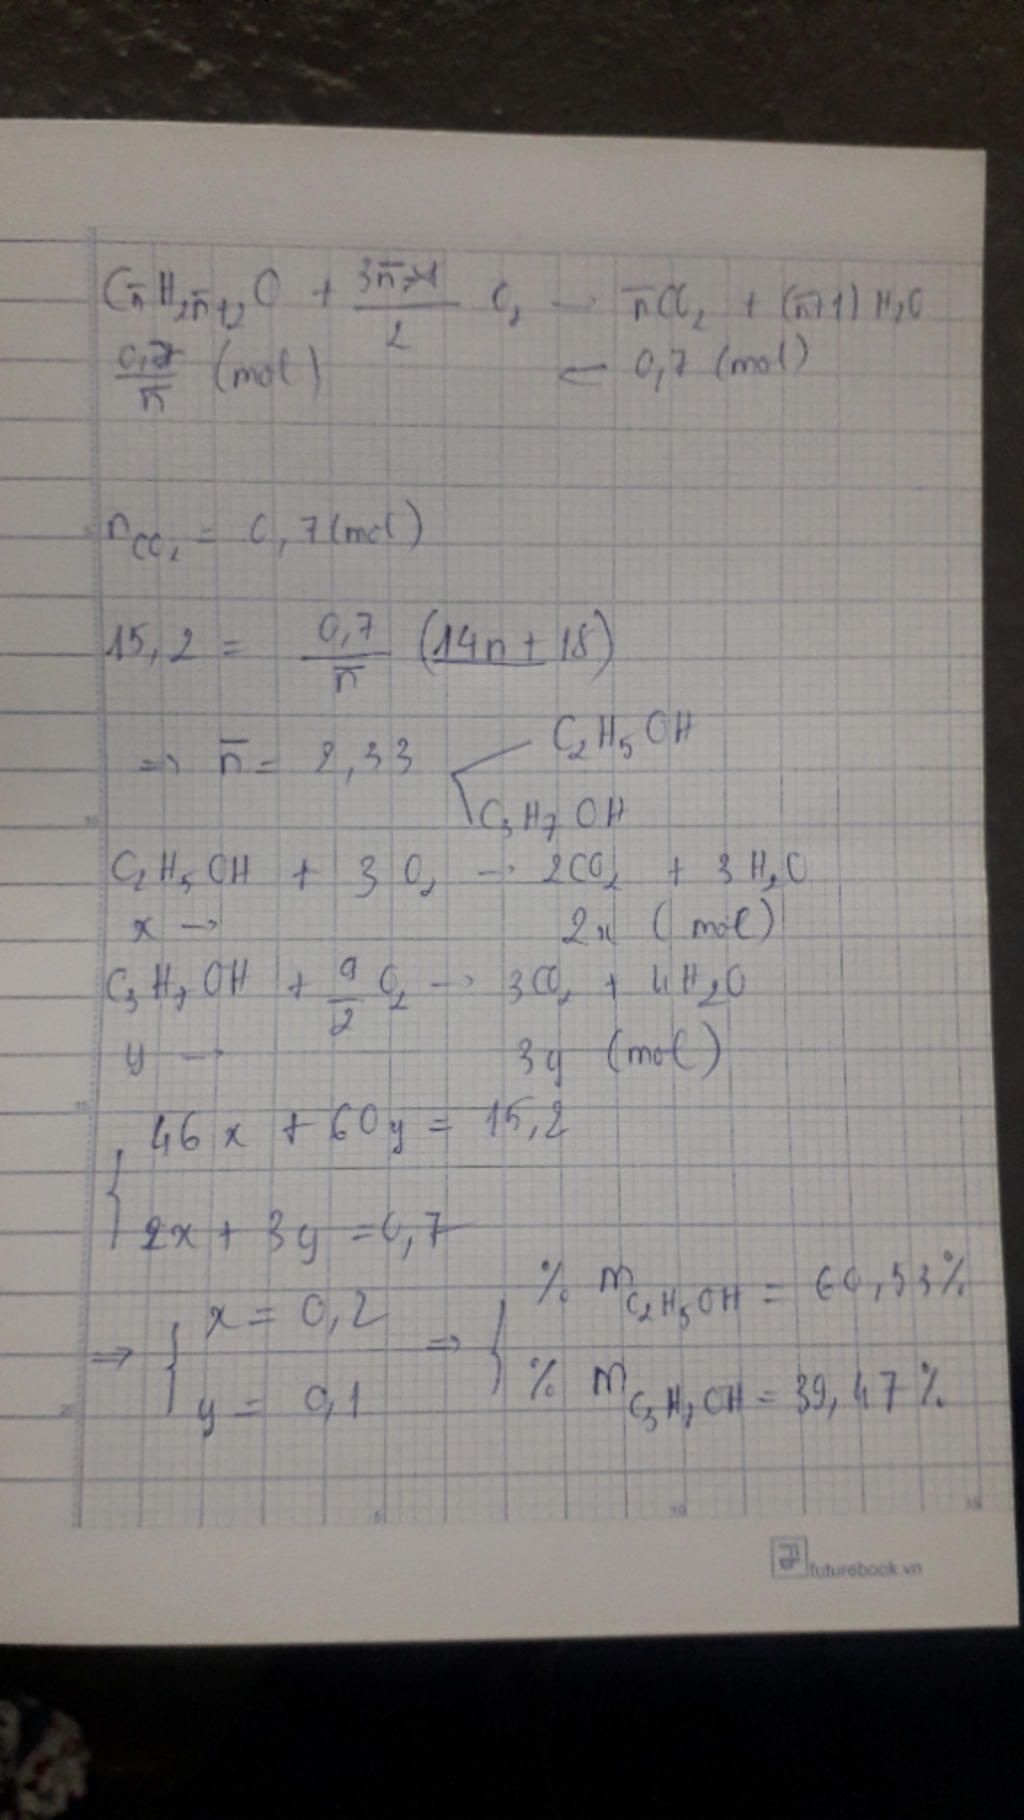 Cn̅H2n̅+2O + (3n̅+1)/2 O2 → n̅CO2 + (n̅+1)H2O
0,7/n̅ (mol) ← 0,7 (mol)
nCO2 = 0,7 (mol)
15,2 = 0,7/n̅ (14n + 18)
=> n̅ = 2,33 < C2H5OH
C3H7OH
C2H5OH + 3O2 → 2CO2 + 3H2O
x → 2x (mol)
C3H7OH + 9/2 O2 → 3CO2 + 4H2O
y → 3y (mol)
{ 46x + 60y = 15,2
2x + 3y = 0,7
=> { x = 0,2 => { % mC2H5OH = 60,53%
y = 0,1 % mC3H7OH = 39,47%
5 10 15
futurebook.vn